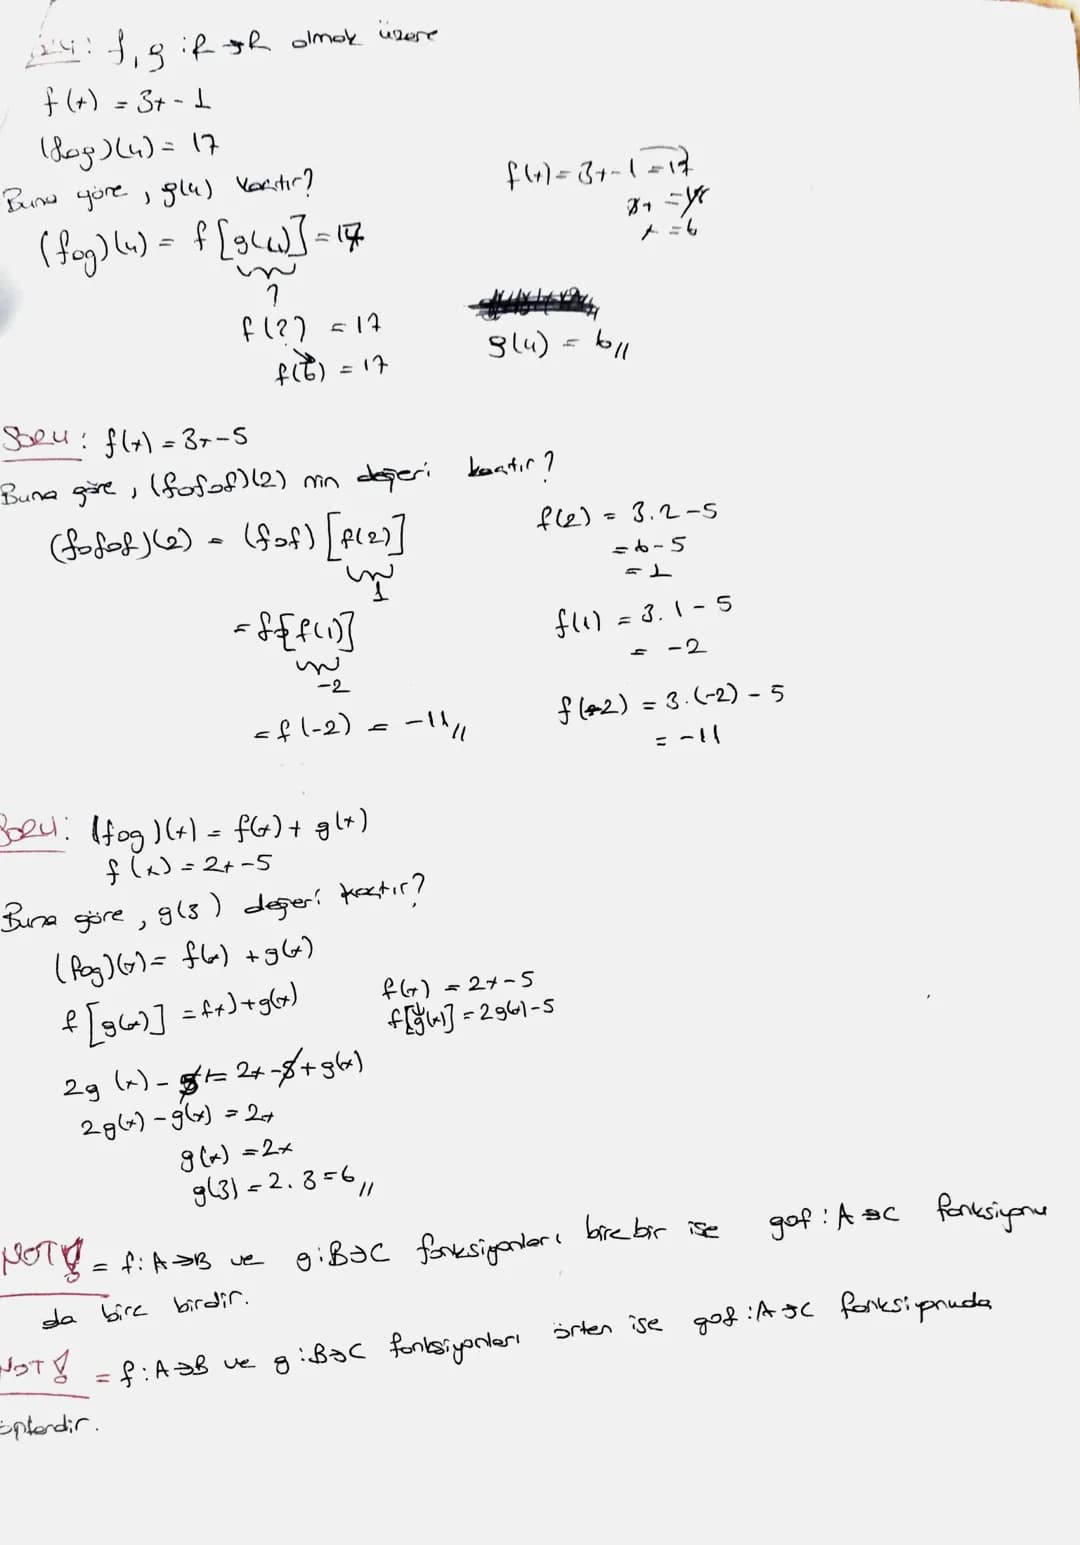 Soru: f, g : R → R olmak üzere
f(x) = 3x - 1
(fog)(4) = 17
Buna göre, g(4) kaçtır?
(fog)(4) = f[g(4)] = 17
?
f(?) = 17
f(6) = 17
f(x) = 3x - 1 = 17
3x = 18
x = 6
g(4) = 6//
Soru: f(x) = 3x - 5
Buna göre, (fofof)(2) nin değeri kaçtır?
(fofof)(2) = (fof)[f(2)]
1
= f[f(1)]
-2
= f(-2) = -11//
f(2) = 3.2 - 5
= 6 - 5
= 1
f(1) = 3.1 - 5
= -2
f(-2) = 3.(-2) - 5
= -11
Soru: (fog)(x) = f(x) + g(x)
f(x) = 2x - 5
Buna göre, g(3) değeri kaçtır?
(fog)(x) = f(x) + g(x)
f[g(x)] = f(x) + g(x)
2g(x) - 5 = 2x - 5 + g(x)
2g(x) - g(x) = 2x
g(x) = 2x
g(3) = 2.3 = 6//
f(x) = 2x - 5
f[g(x)] = 2g(x) - 5
NOT! = f: A→B ve g: B→C fonksiyonları birebir ise gof : A→C fonksiyonu
da bire birdir.
NOT! = f: A→B ve g: B→C fonksiyonları örten ise gof : A→C fonksiyonuda
örtendir.